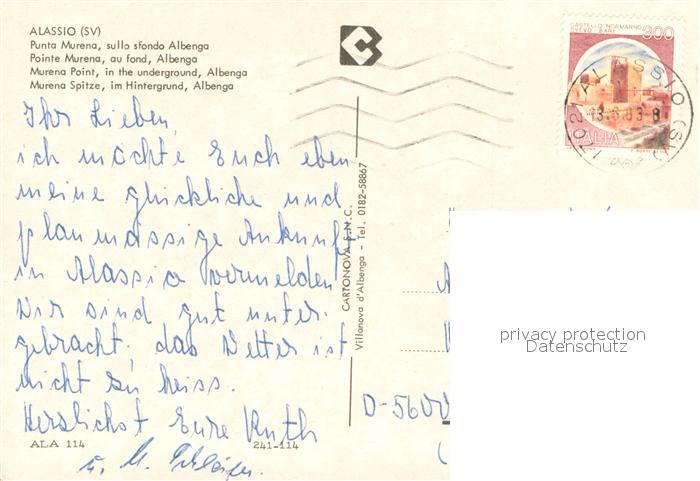 ALASSIO (SV)
Punta Murena, sullo sfondo Albenga
Pointe Murena, au fond, Albenga
Murena Point, in the underground, Albenga
Murena Spitze, im Hintergrund, Albenga
CASTELLO NORMANNO
SVEVO BARI
300
ITALIA
17021 ALASSIO (SV)
Ihr Lieben,
ich möchte Euch eben
meine glückliche und
planmässige Ankunft
in Alassio vermelden
Wir sind gut unter-
gebracht, das Wetter ist
nicht zu heiss.
Herzlichst Eure Ruth
u. M.
CARTONOVA S.N.C.
Villanova d'Albenga - Tel. 0182-58867
privacy protection
Datenschutz
D-5600
ALA 114
241-114